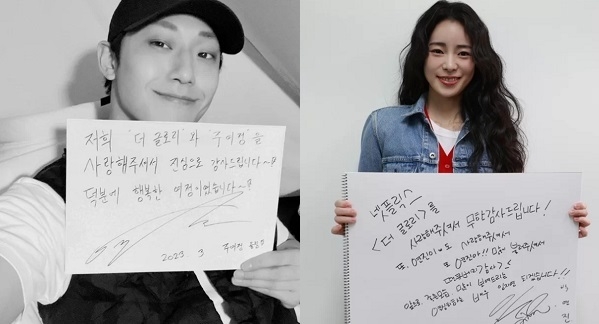 저희 '더 글로리'와 '주여정'을
사랑해주셔서 진심으로 감사드립니다~♡
덕분에 행복한 여정이었습니다~!
2023 . 3
넷플릭스
<더 글로리>를
사랑해주셔서 무한감사드립니다!
또, 연진이도 사랑해주셔서
또 연진아!! 많이 불러주셔서
앞으로 좋은모습 많이 보여드리는
배우 임지연 되겠습니다!!